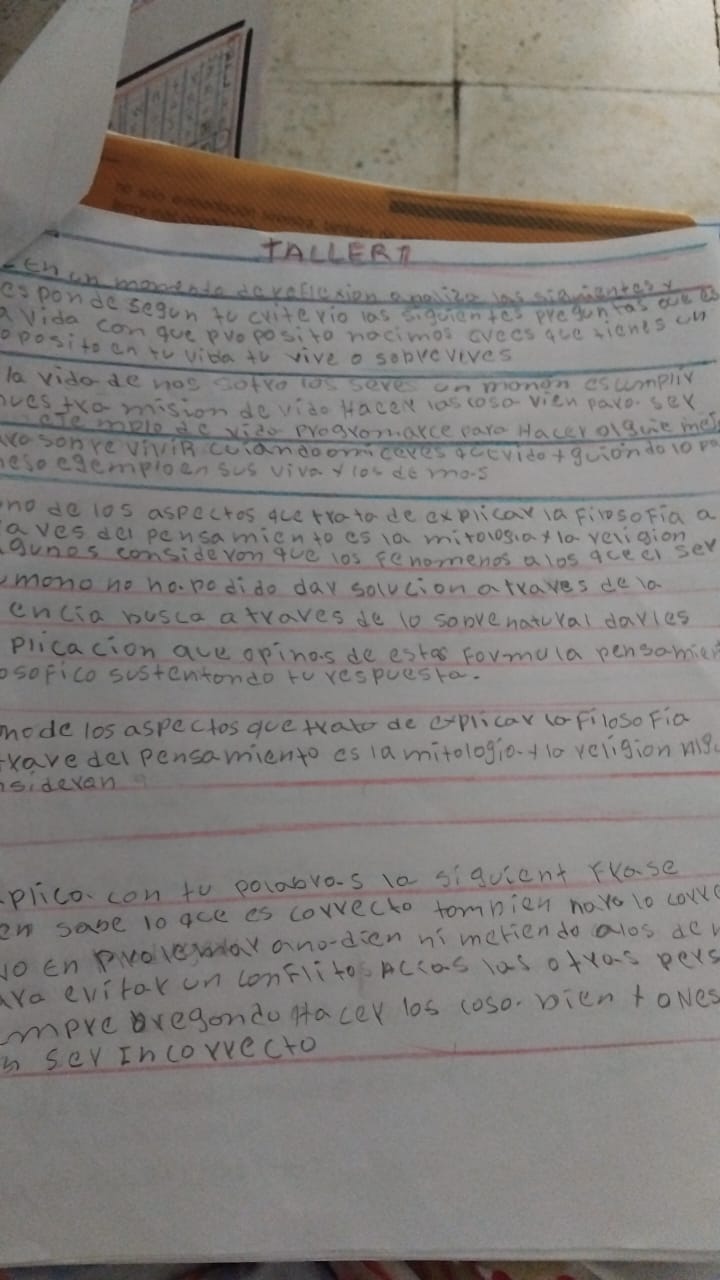 TALLER 1
En un momento de reflexion analiza las siguientes y
esponde segun tu criterio las siguientes preguntas que es
a vida con que proposito nacimos crees que tienes un
oposito en tu vida tu vive o sobrevives
la vida de nos sotro los seres un manon es cumplir
nues tra mision de vida Hacer las cosa vien para ser
eje mplo de vida programarce para Hacer
sonre vivir
eso egemplo en sus viva y los de mas
no de los aspectos que trata de explicar la Filosofia a
aves del pensamiento es la mitologia y la religion
gunos consideran que los fenomenos a los que el ser
mano no ha podido dar solucion atraves de la
encia busca atraves de lo sobrenatural darles
plicacion que opinas de estas formula pensamien
osofico sustentando tu respuesta.
no de los aspectos que trata de explicar la Filosofia
trave del pensamiento es la mitologia y la religion
nsideran
plica con tu palabras la siguient Frase
en sabe lo que es correcto tambien hara lo corre
yo En a nadien ni metiendo a los de
ara evitar un conflito Accas las otras pers
mpre Hacer los cosa bien
n ser Incorrecto